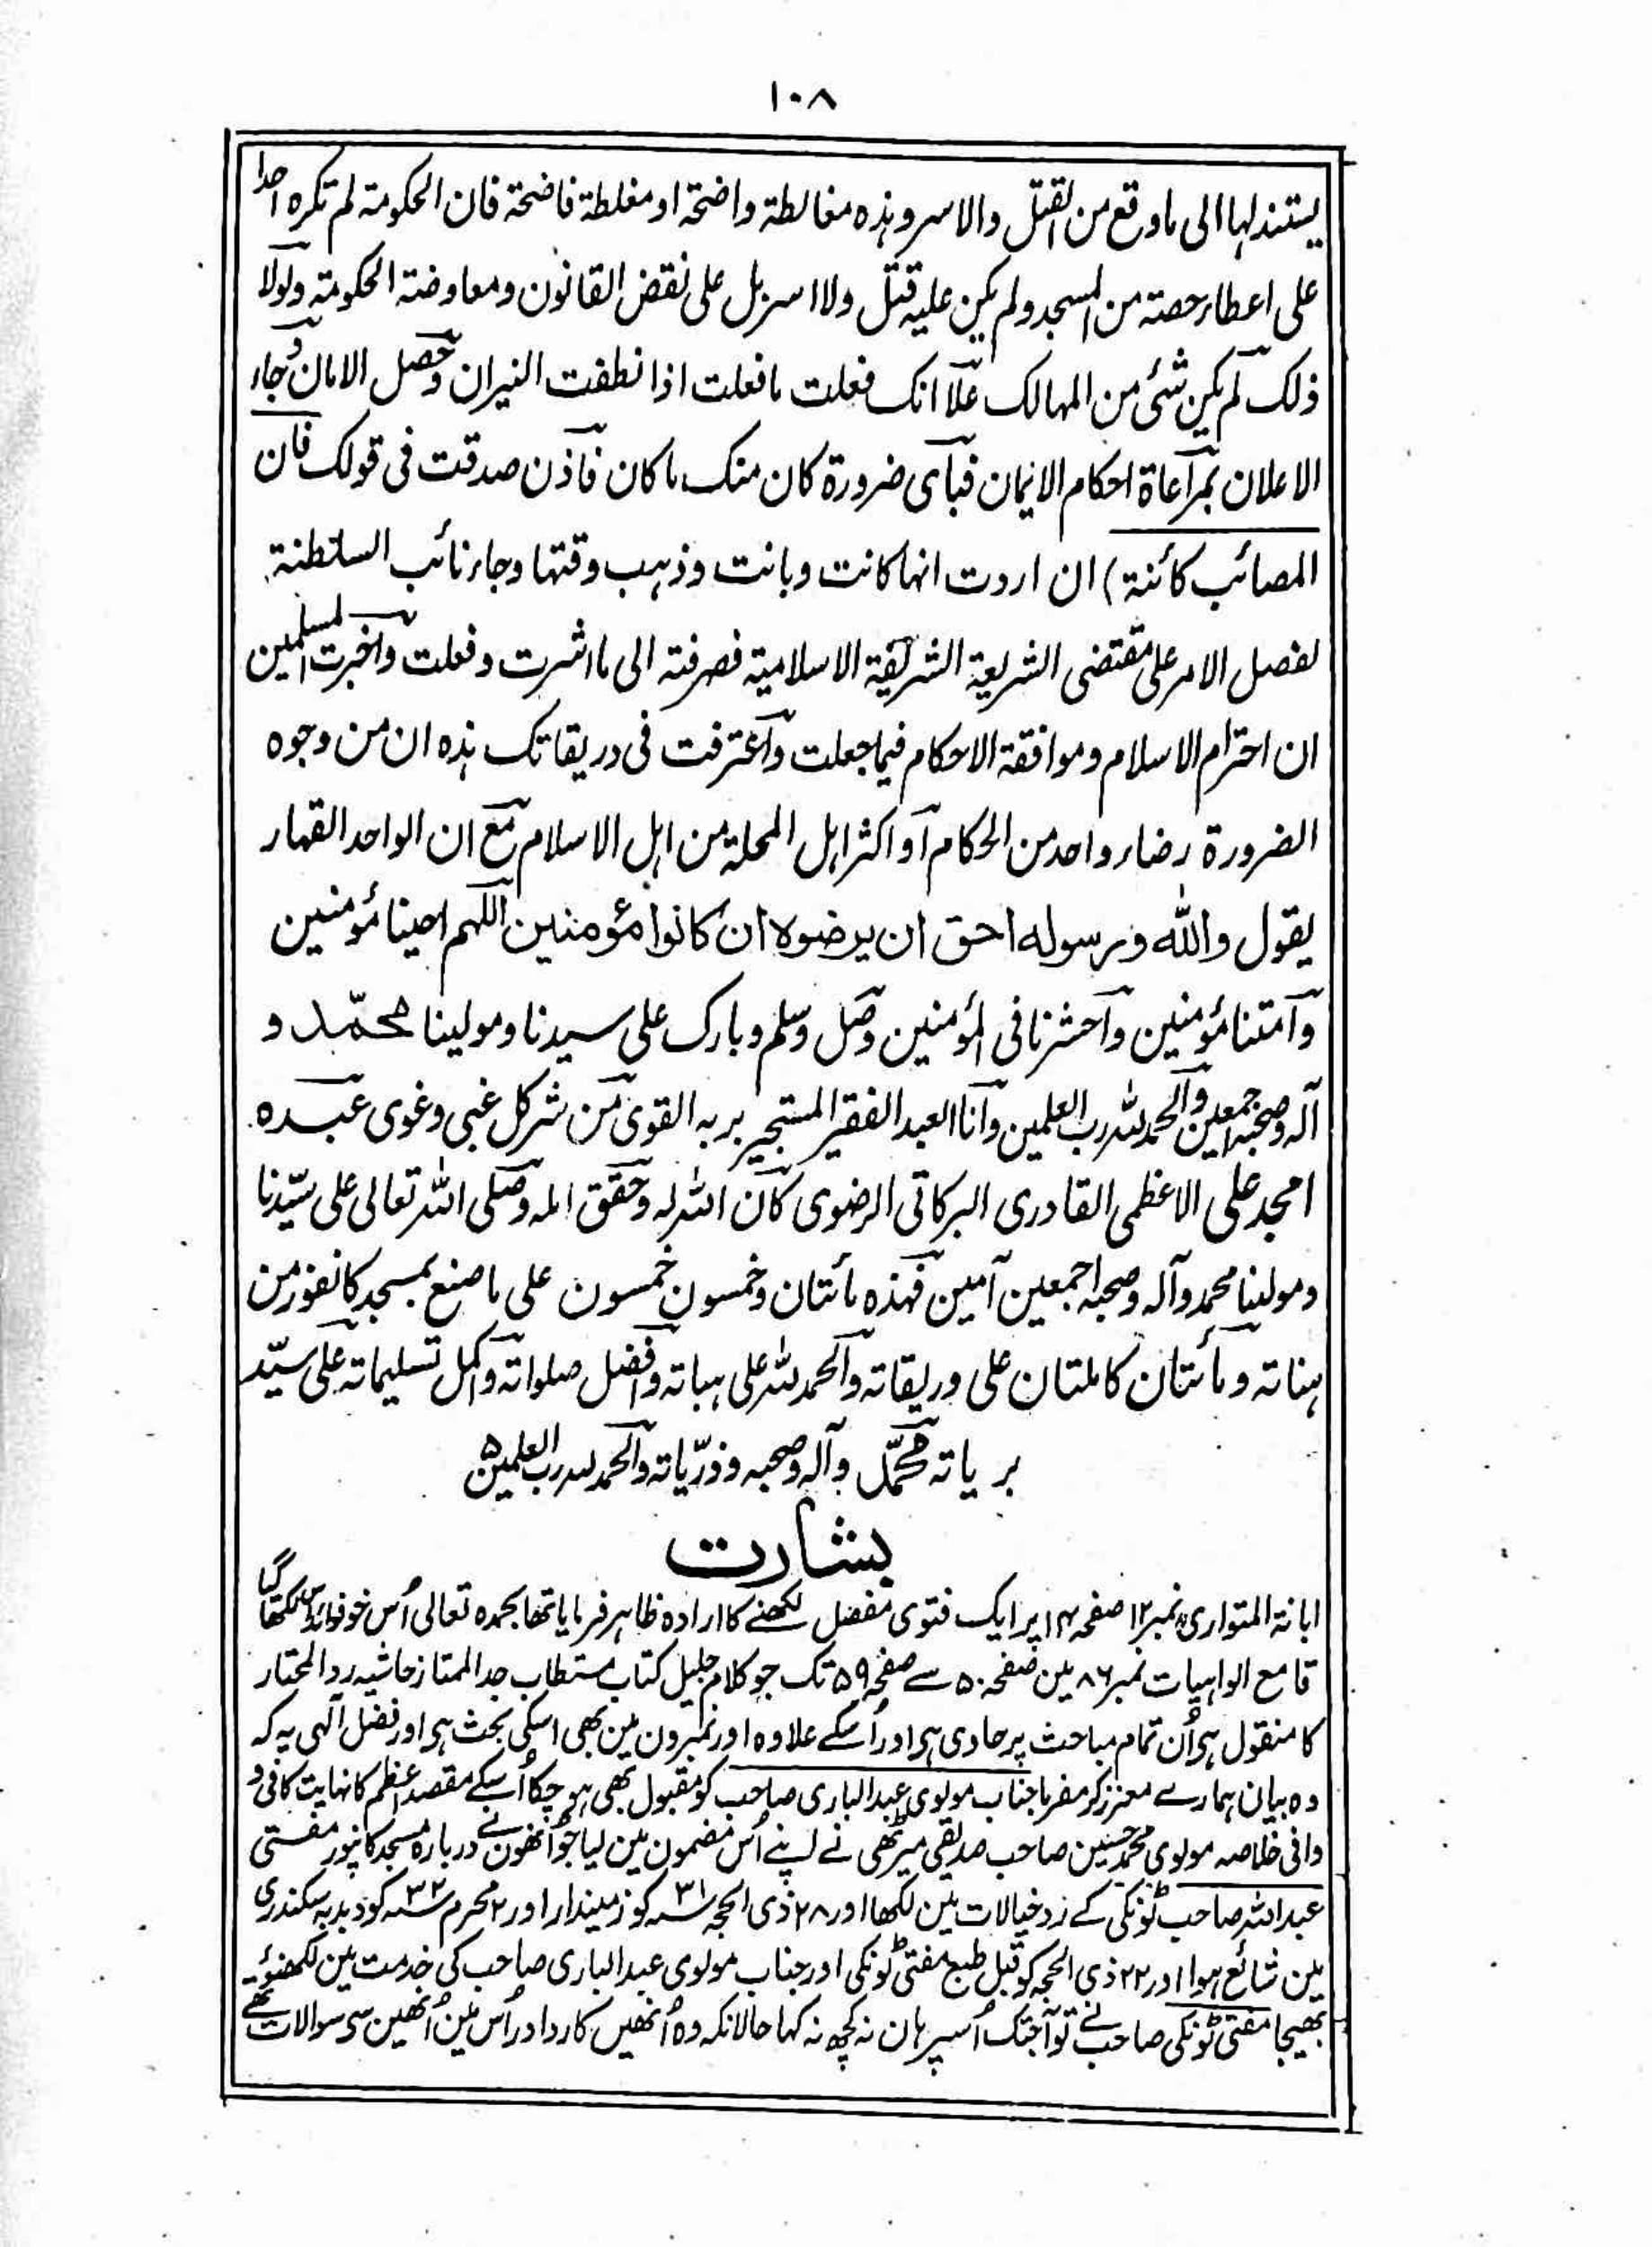 ۱۰۸
يستند لها الى ما وقع من القتل والاسر وهذه مغالطة واضحة او مغلطة فاضحة فان الحكومة لم تكره احدا
على اعطاء حصة من المسجد ولم يكن عليه قتل ولا اسر بل على نقض القانون ومعاوضة الحكومة ولولا
ذلك لم يكن شئ من المهالك علا انك فعلت ما فعلت اذا نطفت النيران وحصل الامان وجاء
الاعلان بمراعاة احكام الايمان فبأى ضرورة كان منك ما كان فاذن صدقت فى قولك فان
المصائب كائنة) ان اردت انها كانت وبانت وذهب وقتها وجاء نائب السلطنة
لفصل الامر على مقتضى الشريعة الشريفة الاسلامية فصرفته الى ما اشرت وفعلت واخبرت المسلمين
ان احترام الاسلام وموافقة الاحكام فيما جعلت واعترفت فى دريقاتك هذه ان من وجوه
الضرورة رضاء واحد من الحكام او اكثر اهل المحلة من اهل الاسلام مع ان الواحد القهار
يقول والله ورسوله احق ان يرضوه ان كانوا مؤمنين اللهم احينا مؤمنين
وامتنا مؤمنين واحشرنا فى المؤمنين وصل وسلم وبارك على سيدنا ومولينا محمّد و
آله وصحبه اجمعين والحمد لله رب العلمين وانا العبد الفقير المستجير بربه القوى من شر كل غبى وغوى عبده
امجد على الاعظمى القادرى البركاتى الرضوى كان الله له وحقق امله وصلى الله تعالى على سيّدنا
ومولينا محمد وآله وصحبه اجمعين آمين فهذه مائتان وخمسون خمسون على ما صنع بمسجد كانفور من
هناته ومائتان كاملتان على وريقاته والحمد لله على هباته وافضل صلواته واكمل تسليماته على سيّد
برياته محمّد وآله وصحبه وذرّياته والحمد لله رب العلمين
بشارت
ابانة المتواری نمبر ۱۲ صفحہ ۱۴ پر ایک فتوی مفصل لکھنے کا ارادہ ظاہر فرمایا تھا بحمدہ تعالی اُس خوفوائد لکھا گیا
قامع الواہیات نمبر ۸۶ مین صفحہ ۵۰ سے صفحہ ۵۹ تک جو کلام جلیل کتاب مستطاب جد الممتاز حاشیہ رد المحتار
کا منقول ہی اُن تمام مباحث پر حاوی ہی اور اُسکے علاوہ اور نمبرون مین بھی اسکی بحث ہی اور فضل آلہی یہ کہ
وہ بیان ہمارے معزز کرمفرما جناب مولوی عبد الباری صاحب کو مقبول بھی ہو چکا اُسکے مقصد اعظم کا نہایت کافی و
وافی خلاصہ مولوی محمد حسین صاحب صدیقی میرٹھی نے اپنے اُس مضمون مین لیا جو اُنھون نے دربارہ مسجد کانپور مفتی
عبد اللہ صاحب ٹونکی کے رد خیالات مین لکھا اور ۲۸ ذی الحجہ ۳۱ سہ کو زمیندار اور ۲ محرم ۳۲ سہ کو دبدبہ سکندری
مین شائع ہوا اور ۲۲ ذی الحجہ کو قبل طبع مفتی ٹونکی اور جناب مولوی عبد الباری صاحب کی خدمت مین لکھنؤ
بھیجا مفتی ٹونکی صاحب نے تو آجتک اُسپر ہان نہ کچھ نہ کہا حالانکہ وہ اُنھیں کا رد اور اُس مین اُنھین سی سوالات تھے